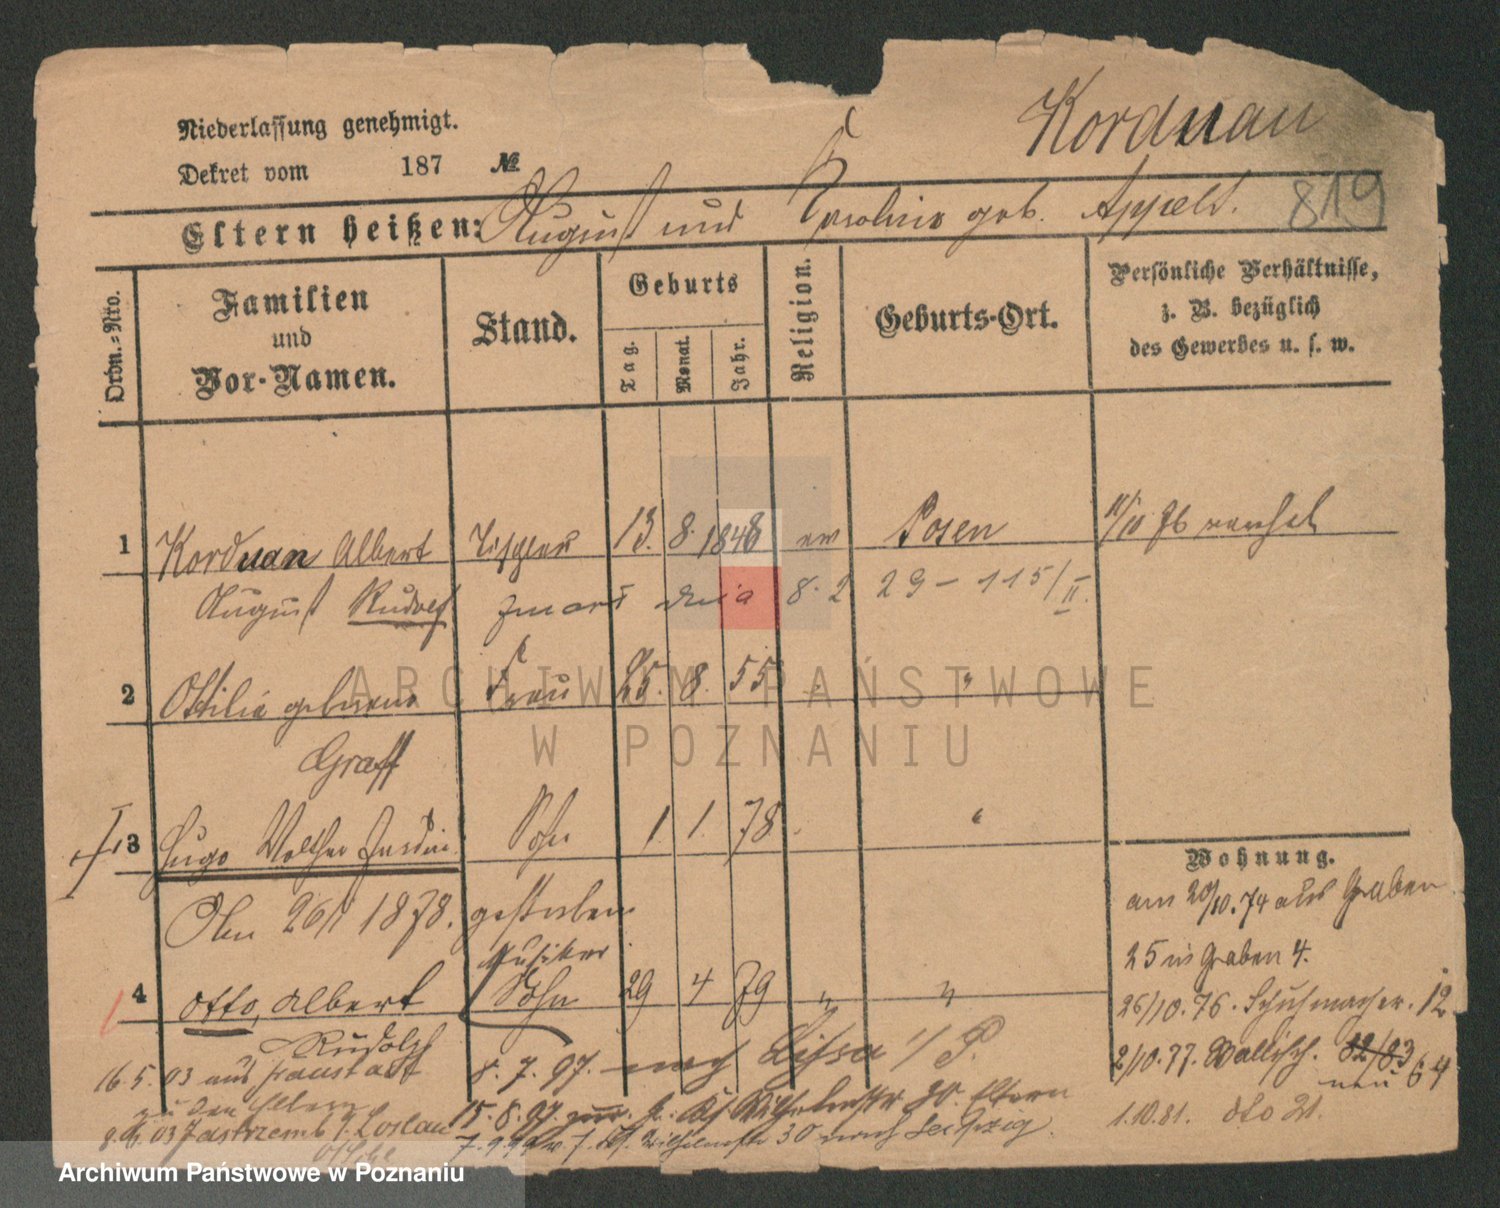 Niederlassung genehmigt.
Dekret vom 187 №
Korduan
819
Eltern heißen: August und Karoline geb. Appelt.
Ordn.-Nro.
Familien und Vor-Namen.
Stand.
Geburts
Tag.
Monat.
Jahr.
Religion.
Geburts-Ort.
Persönliche Verhältnisse,
z. B. bezüglich
des Gewerbes u. s. w.
1 Korduan Albert Tischler 13. 8. 1848 ev Posen
August Rudolf zmarł dnia 8. 2 29 - 115/II.
2 Ottilie geborene Frau 25. 8. 55 "
Graff
3 Hugo Walther Sohn 1. 1. 78 "
Den 26/1 1878. gestorben
Musiker
4 Otto, Albert Sohn 29 4 79 " "
Rudolph
Wohnung.
am 20/10.74 aus Graben
25 in Graben 4.
26/10.76. Schuhmacher. 12
2/10.77. Wallisch. 82/83
neu 64
1.10.81. dto 21.
16.5.03 aus
zu den Eltern
8.7.97. nach Lissa i/P.
15.8.97 zur. Wilhelmstr 30. Eltern
30 nach Leipzig.
03 Jastrzemb Loslau
ARCHIWUM PAŃSTWOWE
W POZNANIU
Archiwum Państwowe w Poznaniu